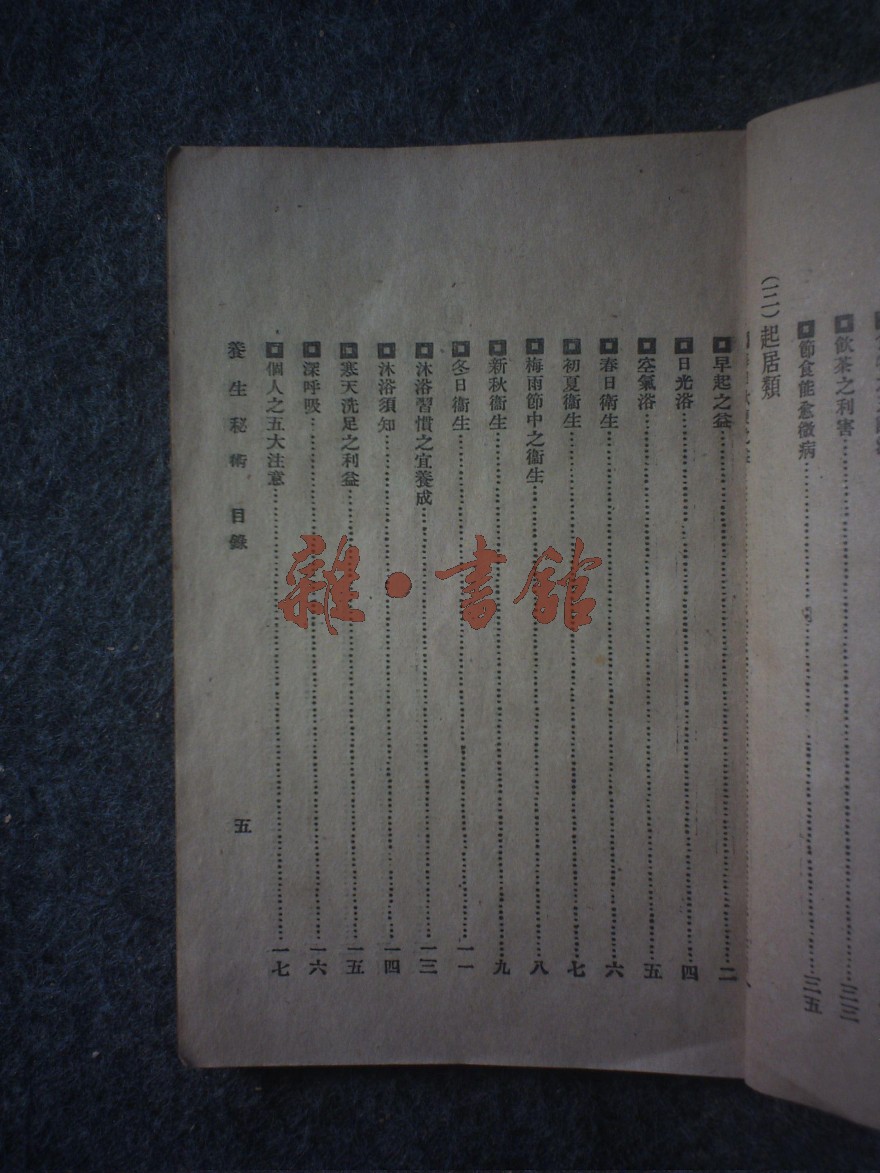 飲茶之利害……三三
節食能愈微病……三五
（二）起居類
早起之益……二
日光浴……四
空氣浴……五
春日衛生……六
初夏衛生……七
梅雨節中之衛生……八
新秋衛生……九
冬日衛生……一一
沐浴習慣之宜養成……一三
沐浴須知……一四
寒天洗足之利益……一五
深呼吸……一六
個人之五大注意……一七
養生秘術 目錄 五
雜·書館